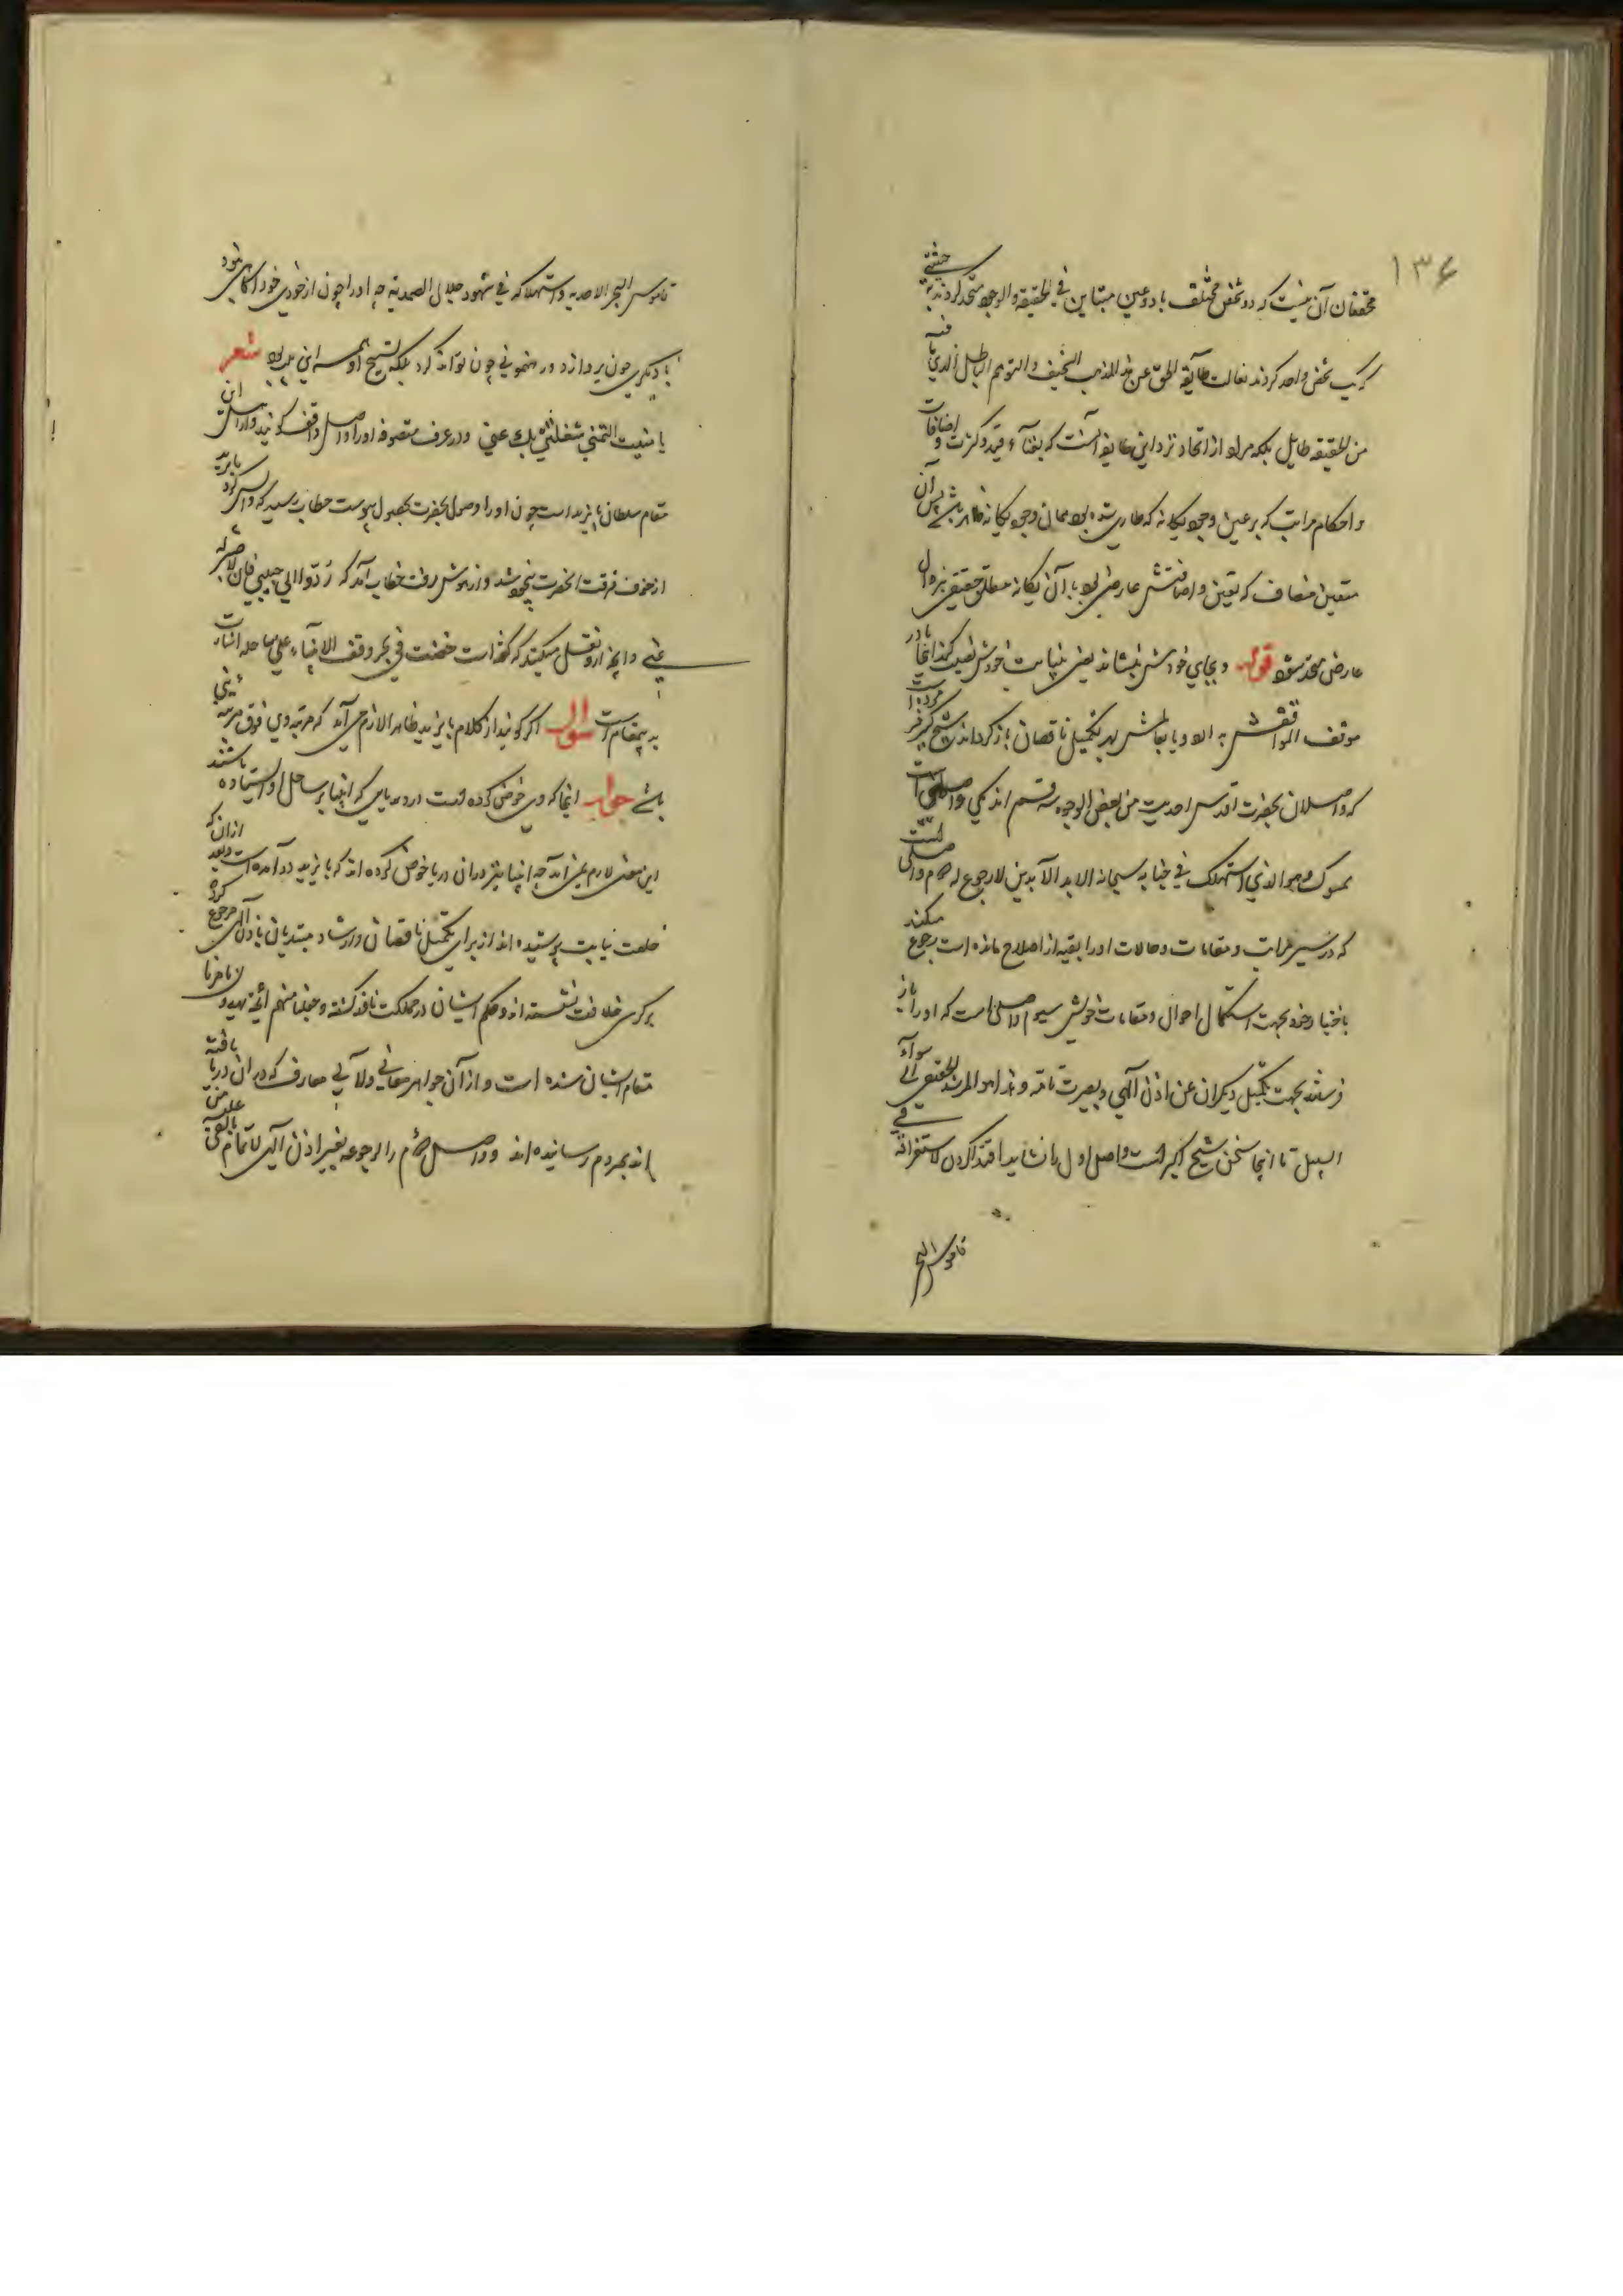 ۱۳۶
محققان آن نیست که دو شخص مختلف یا دو عین متباین فی الحقیقة والوجود متحد کردند بحیثیتی
که یک شخص واحد کردند تعالت طایفة الحق عن هذا المذهب السخیف والتوهم الباطل الذی ما فیه
من الحقیقة طایل بلکه مراد از اتحاد نزد این طایفه آنست که بفناء قید و کثرت و اضافات
و احکام مراتب که بر عین وجود یکانه که طاری شده بود همان وجود یکانه ظاهر باشد پس آن
متعین مضاف که تعین و اضافتش عارضی بود با آن یکانه مطلق حقیقی بزوال
عارض متحد شود قوله و بجای خودش بنشاند یعنی بنیابت خودش نصب کند اینجا در
موقف المواقفش به الاد یا بجالش بهر تکمیل ناقصان باز کرداند شیخ اکبر فرموده است
که واصلان بحضرت اقدس احدیت من بعض الوجوه سه قسم اند یکی واصلی است
ممسوک وهو الذی استهلک فی جنابه سبحانه الابد الآبدین لا رجوع له دوم واصلی است
که در سیر مراتب و مقامات و حالات او را بقیه از اصلاح مانده است رجوع میکند
باختیار خود بجهت استکمال احوال و مقامات خویش سیوم واصلی است که او را باز
فرستند بجهت تکمیل دیکران عن اذن آلهی و بصیرت تامه و هذا هو المرشد الحقیقی الی سواء
السبیل تا اینجا سخن شیخ اکبر است واصل اول را نشاید اقتدا کردن لاستغراقه فی
قاموس البحر
قاموس البحر الاحدیه واستهلاکه فی شهود جلال الصمدیه چه او را چون از خودی خود آکاهی نبود
با دیکری چون پردازد و رهنمونی چون تواند کرد بلکه تسبیح او همه این بود شعر
یا منیت المتمنی شغلتنی بک عنی و در عرف متصوفه او را واصل واقف کویند و از اصل این
مقام سلطان بایزید است چون او را وصول بحضرت بحصول پیوست خطاب رسید که واپس کرد بایزید
از خوف فرقت آنحضرت بیخود شد و از هوش رفت خطاب آمد که ردوا الی حبیبی فان لا صبر له
عنی و آنچه ازو نقل میکنند که کفته است خضت فی بحر وقف الانبیاء علی ساحله اشارت
به همین مقام است سوال اکر کویند از کلام بایزید ظاهرا لازم می آید که مرتبه وی فوق مرتبه نبی
باشد جواب آنجا که وی خوض کرده است در دریایی که انبیا بر ساحل او ایستاده باشند
این معنی لازم نمی آید چه انبیا نیز در آن دریا خوض کرده اند که بایزید در آمده است و بعد از آن که
خلعت نیابت پوشیده اند از برای تکمیل ناقصان و ارشاد مبتدیان باذن آلهی رجوع کرده
بر کرسی خلافت نشسته اند و حکم ایشان در مملکت نافذ کشته و جعلنا منهم ائمة یهدون بامرنا
مقام ایشان شده است و از آن جواهر معانی و لآلی معارف که در آن دریا یافته
اند بمردم رسانیده اند و واصل دوم را لرجوعه بغیر اذن آلهی لاتمام ما بقی علیه من